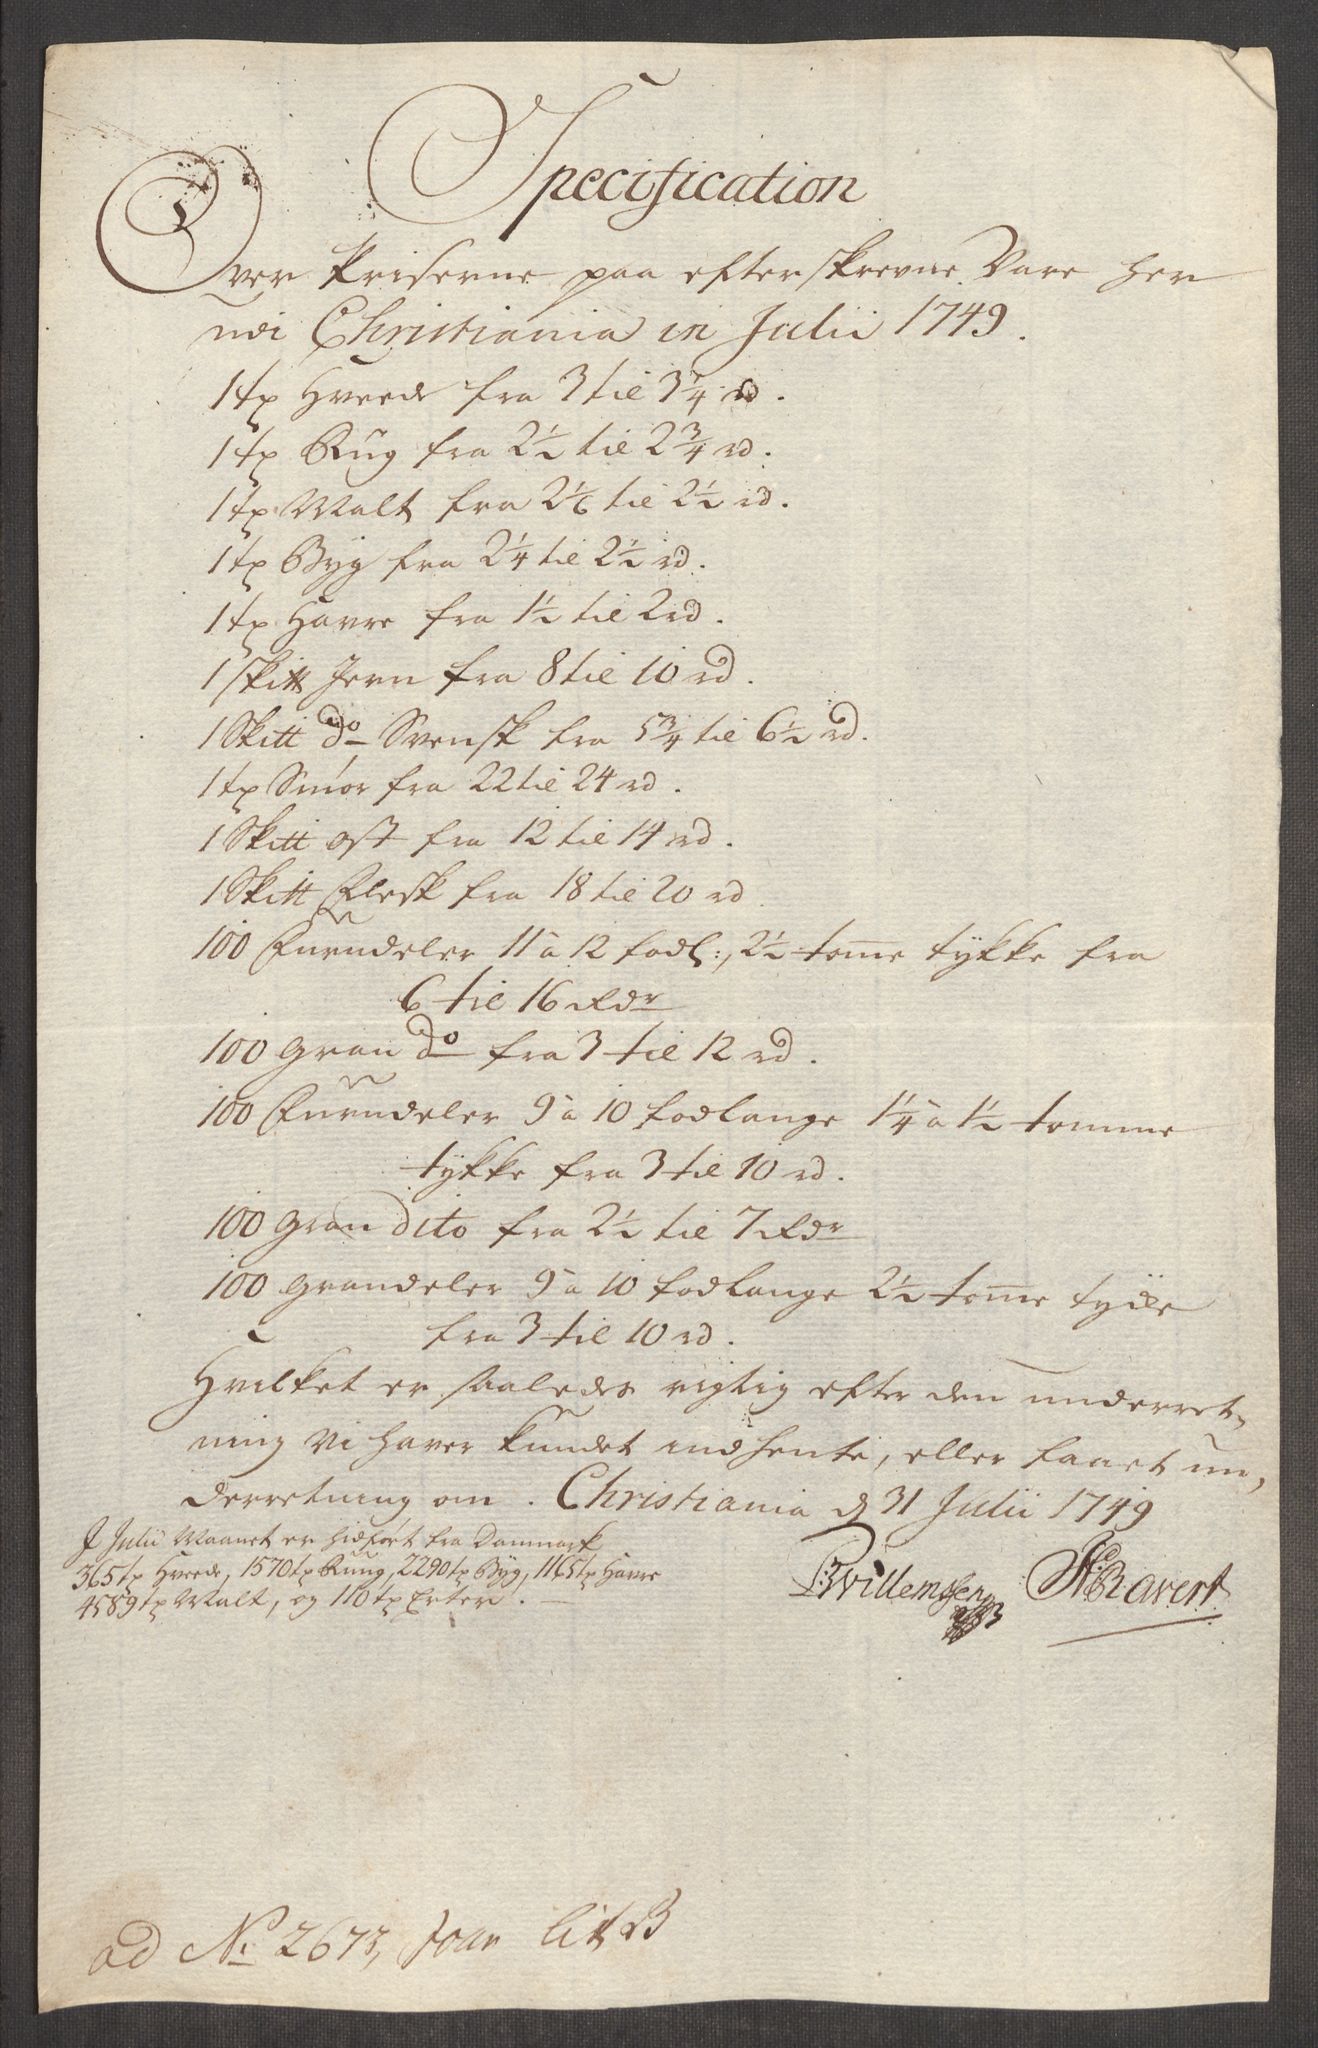 Specification
Over Priserne paa efterskrevne Vare her
udi Christiania in Julii 1749.
1 tp Hvede fra 3 til 3 1/4 rd.
1 tp Rug fra 2 1/2 til 2 3/4 rd.
1 tp Malt fra 2 1/6 til 2 1/2 rd.
1 tp Byg fra 2 1/4 til 2 1/2 rd.
1 tp Havre fra 1 1/2 til 2 rd.
1 skitt Jern fra 8 til 10 rd.
1 Skitt do Svensk fra 5 3/4 til 6 1/2 rd.
1 tp Smór fra 22 til 24 rd.
1 Skitt ost fra 12 til 14 rd.
1 Skitt Flesk fra 18 til 20 rd
100 Furudeler 11 a 12 fodl:, 2 1/2 tome tykke fra
6 til 16 Rdr
100 gran do fra 3 til 12 rd.
100 Furudeler 9 a 10 fodlange 1 1/4 a 1 1/2 tomme
tykke fra 3 til 10 rd.
100 gran dito fra 2 1/2 til 7 Rdr
100 grandeler 9 a 10 fodlange 2 1/2 tome
fra 3 til 10 rd.
Hvilket er saaledes rigtig efter den underret-
ning Vi haver kundet indhente, eller faaet un,
derretning om. Christiania d 31 Julii 1749
J Julii Maanet er hidfört fra Danmark
365 tp Hvede, 1570 tp Rug, 2290 tp Byg, 1165 tp Havre
4589 tp Malt, og 110 tp Erter.
Willemsen
Ravert
ad No 2673, Jour litt B